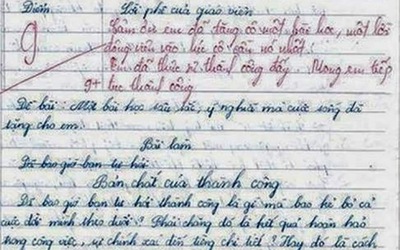 Điểm
Lời phê của giáo viên
9
Cảm ơn em đã tặng cô một bài học, một lời
động viên vào lúc cô cần nó nhất!
Em đã thực sự thành công đấy. Mong em tiếp
9+ tục thành công
Đề bài: Một bài học sâu sắc, ý nghĩa mà cuộc sống đã
tặng cho em.
Bài làm
Đã bao giờ bạn tự hỏi
Bản chất của thành công
Đã bao giờ bạn tự hỏi thành công là gì mà bao kẻ bỏ cả
cuộc đời mình theo đuổi? Phải chăng đó là kết quả hoàn hảo
trong công việc, sự chính xác đến từng chi tiết? Hay đó là cách